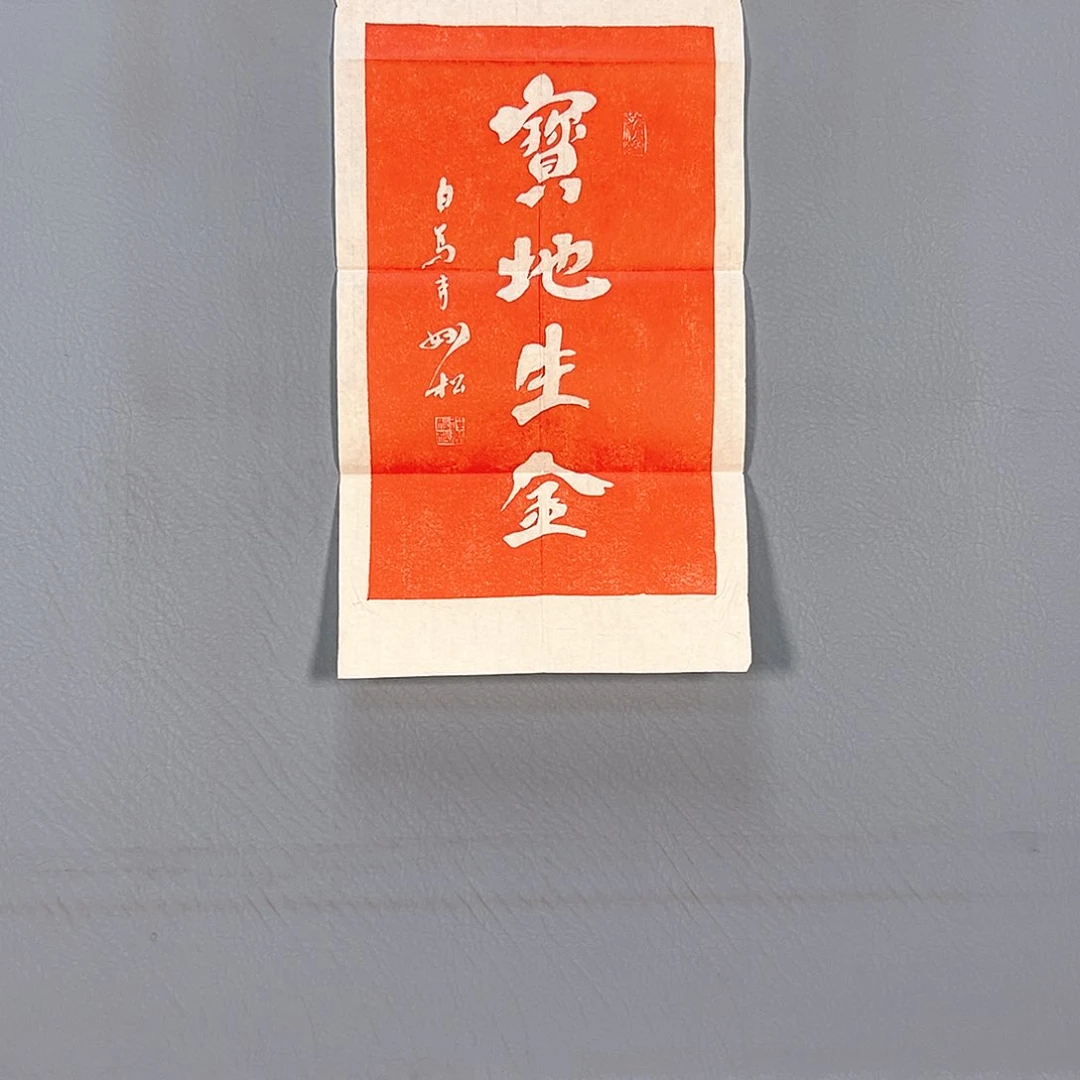 寶地生金
白馬寺妙松